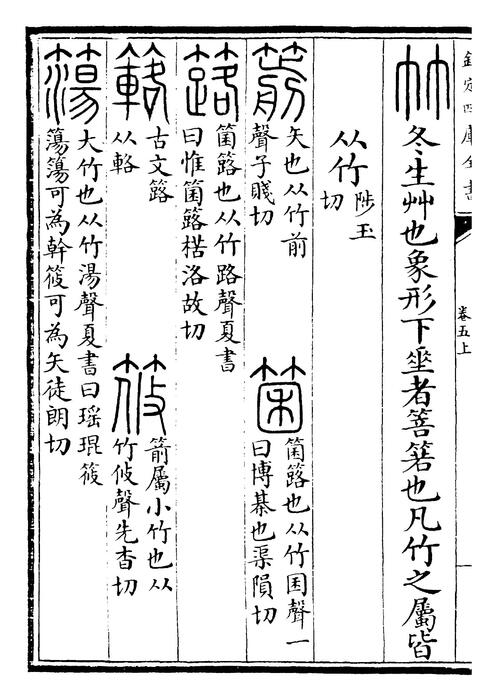 欽定四庫全書
卷五上
竹冬生艸也象形下垂者箁箬也凡竹之屬皆
从竹陟玉
切
箭矢也从竹前
聲子賤切
箘箘簬也从竹囷聲一
曰博棊也渠隕切
簬箘簬也从竹路聲夏書
曰惟箘簬楛洛故切
簵古文簬
从輅
筱箭屬小竹也从
竹攸聲先杳切
簜大竹也从竹湯聲夏書曰瑶琨筱
簜簜可為幹筱可為矢徒朗切